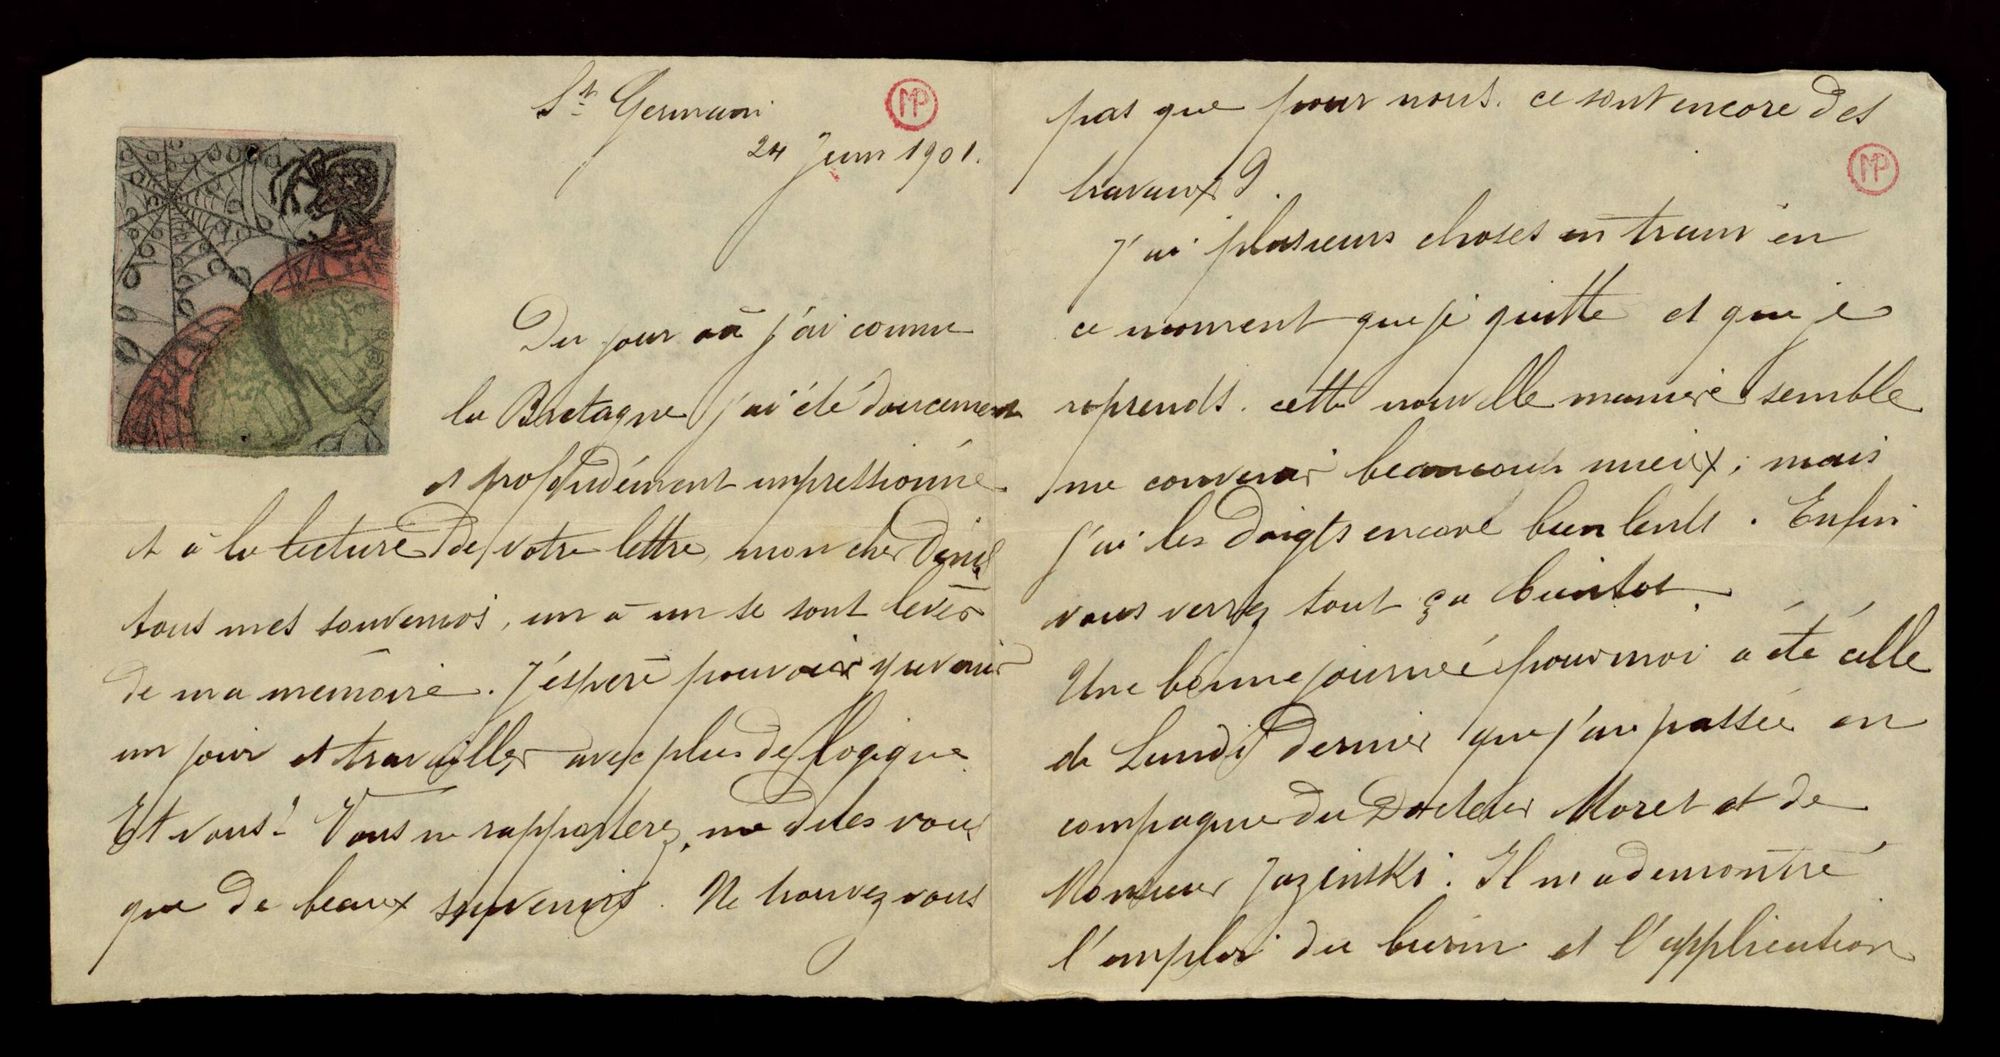 St Germain
24 Juin 1901.
MP
Du jour où j'ai connu
la Bretagne j'ai été doucement
et profondément impressionné
et à la lecture de votre lettre, mon cher Denis
tous mes souvenirs, un à un se sont levés
de ma mémoire. J'espère pouvoir y revenir
un jour et travailler avec plus de logique.
Et vous? Vous ne rapporterez, me dites vous
que de beaux souvenirs. Ne trouvez vous
pas que pour nous. ce sont encore des
MP
travaux?
J'ai plusieurs choses en train en
ce moment que je quitte et que je
reprends. cette nouvelle manière semble
me convenir beaucoup mieux; mais
j'ai les doigts encore bien lents. Enfin
vous verrez tout ça bientot
Une bonne journée pour moi a été celle
de Lundi dernier que j'ai passée en
compagnie du Docteur Moret et de
Monsieur Jazinski. Il m'a demontré
l'emploi du burin et l'application